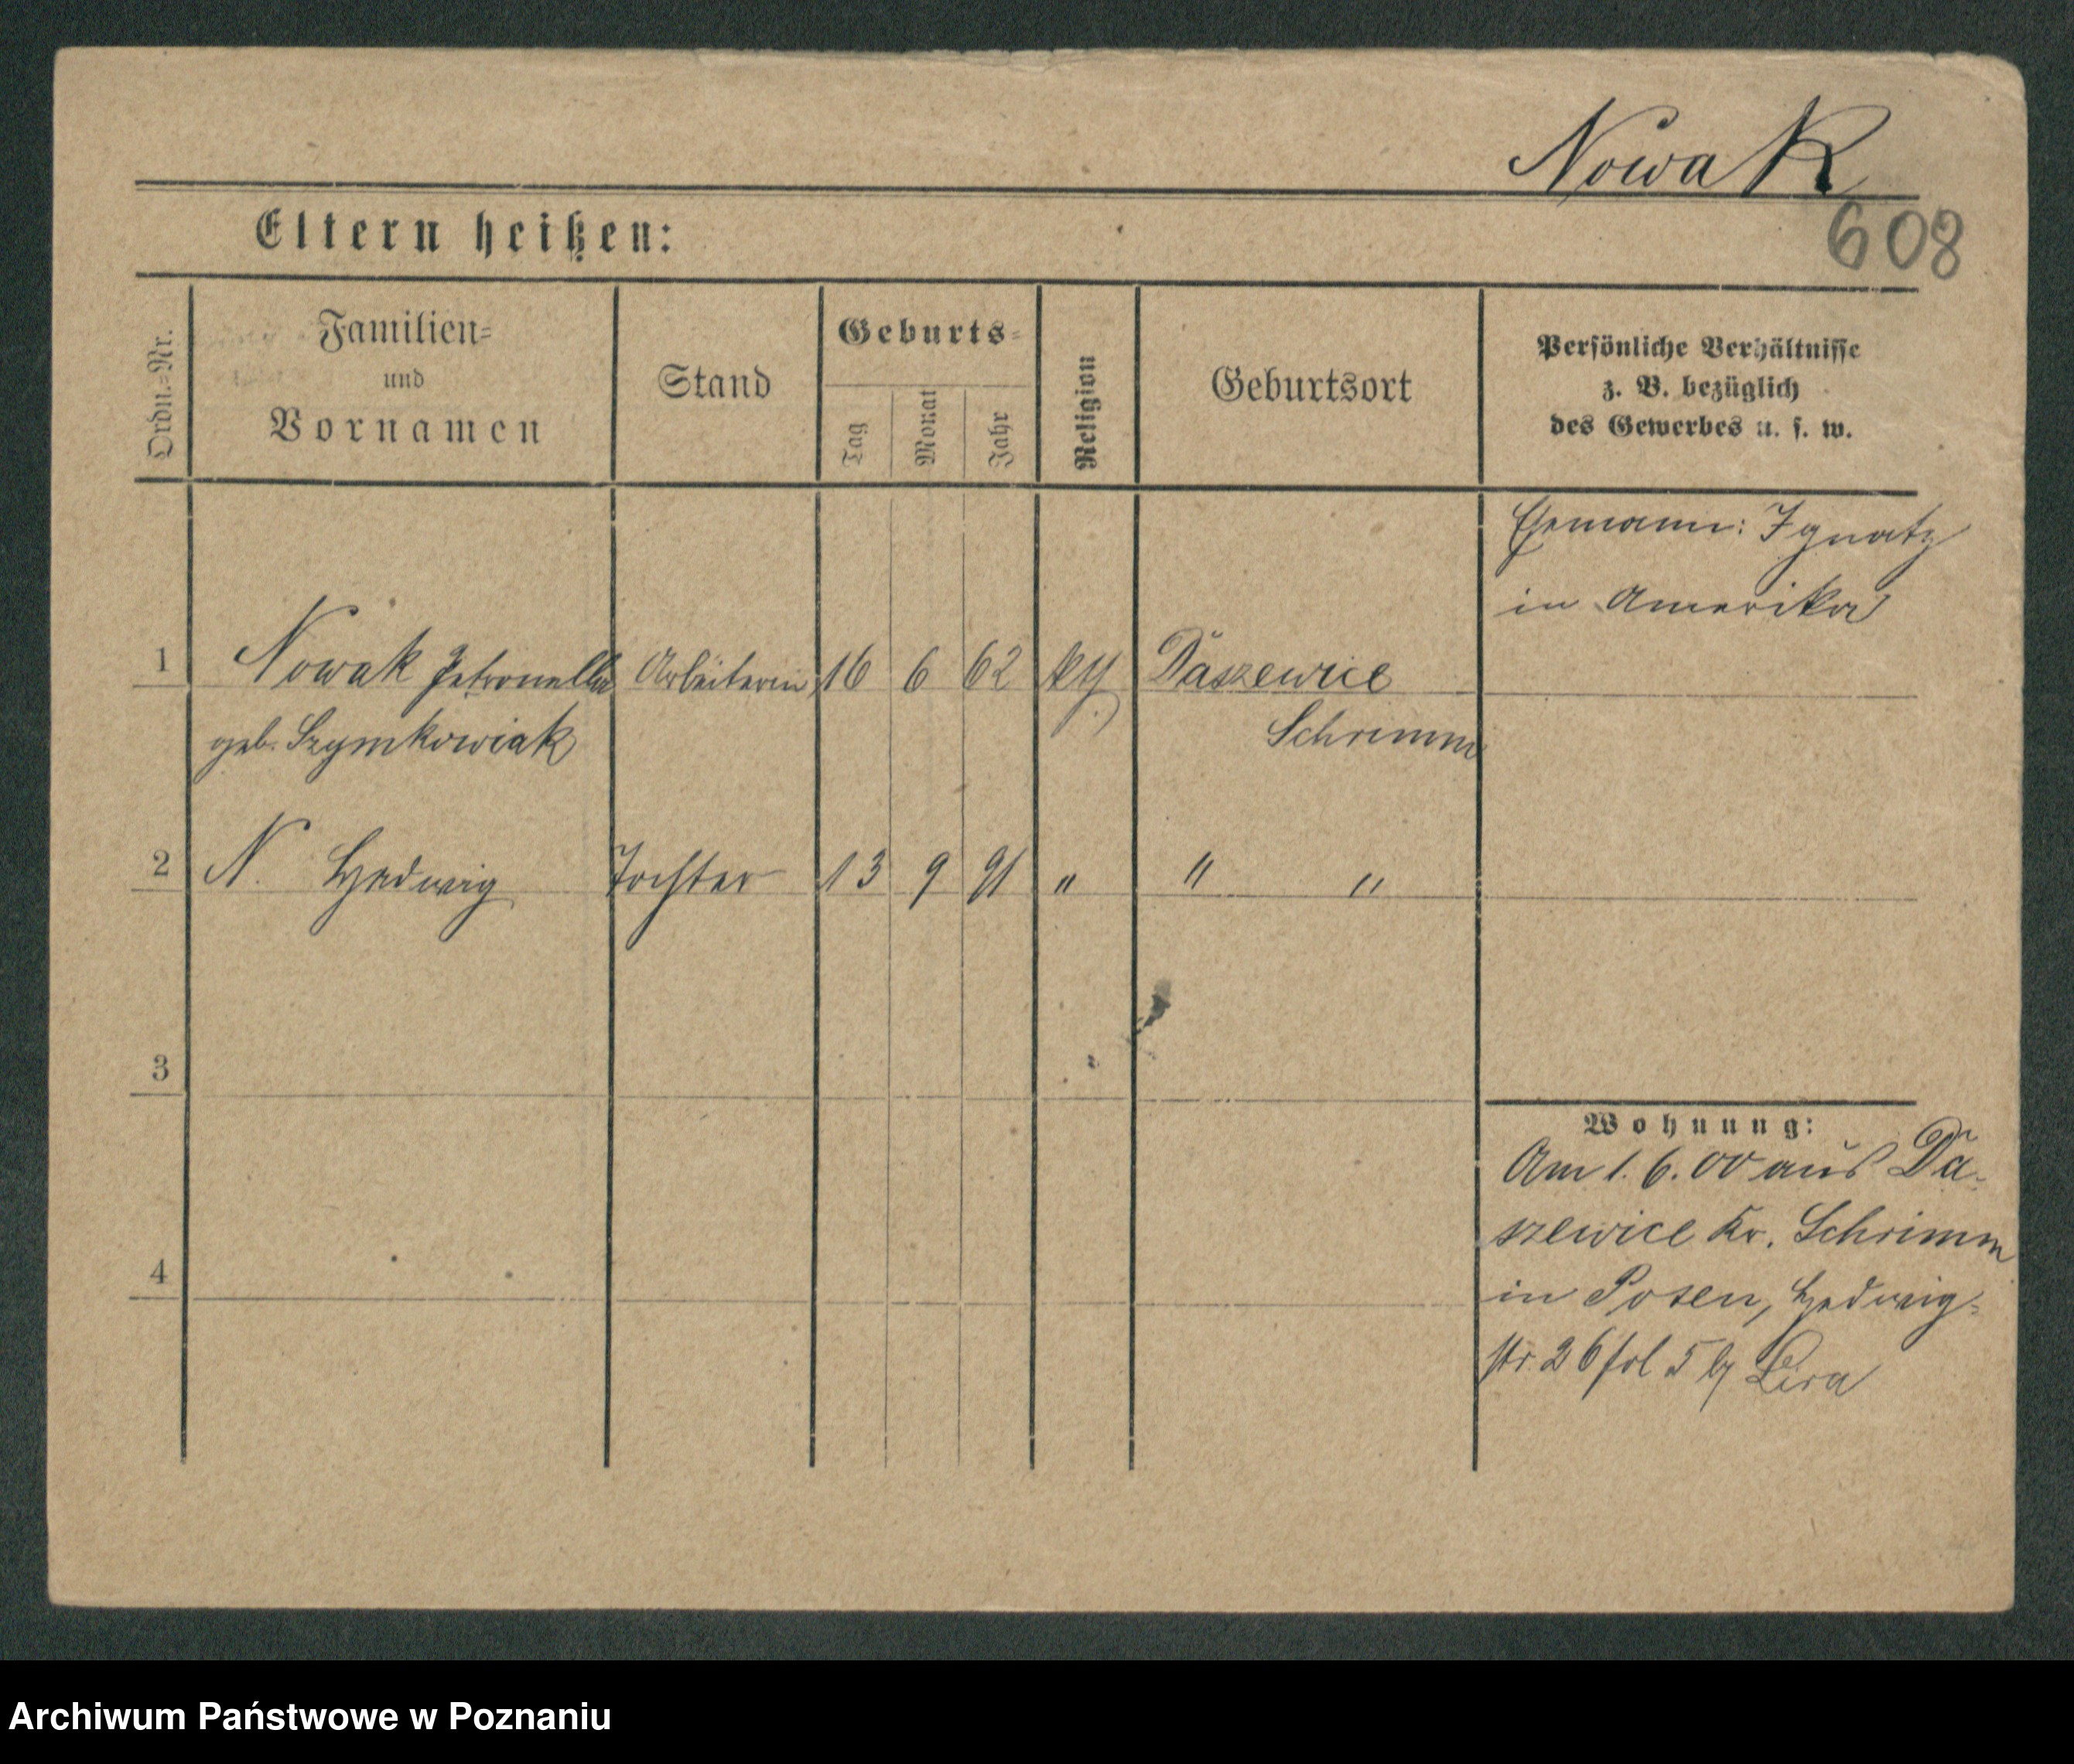 Nowak
608
Eltern heißen:
Ordn.=Nr.
Familien=
und
Vornamen
Stand
Geburts=
Tag
Monat
Jahr
Religion
Geburtsort
Persönliche Verhältnisse
z. B. bezüglich
des Gewerbes u. s. w.
Ehemann: Ignatz
in Amerika
1 Nowak Petronella Arbeiterin 16 6 62 Daszewice
geb. Szymkowiak Schrimm
2 N. Hedwig Tochter 13 9 91 " " "
3
Wohnung:
Am 1. 6. 00 aus Da-
szewice Kr. Schrimm
4
in Posen, Hedwig=
str. 26 fol 5 Lira
Archiwum Państwowe w Poznaniu